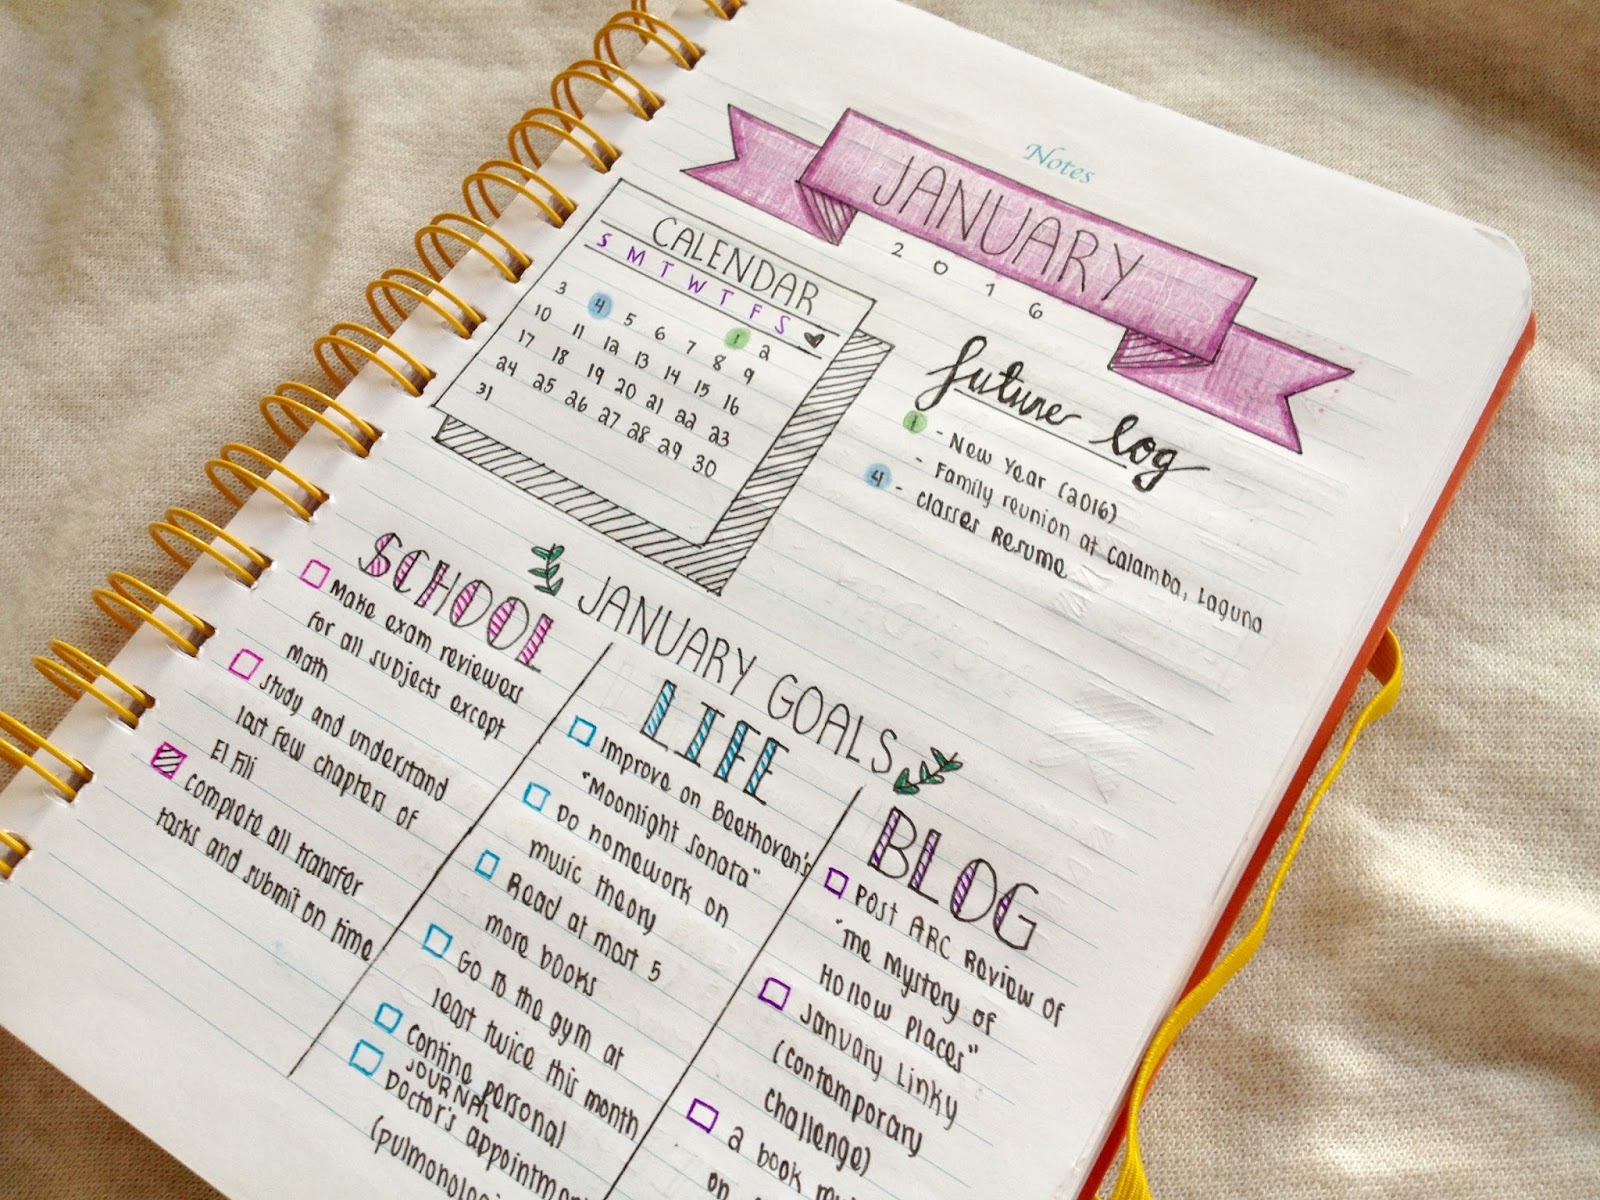 Notes
JANUARY
2016
CALENDAR
S M T W T F S
1 2
3 4 5 6 7 8 9
10 11 12 13 14 15 16
17 18 19 20 21 22 23
24 25 26 27 28 29 30
31
future log
1 - New Year (2016)
- Family reunion at Calamba, Laguna
4 - Classes Resume
JANUARY GOALS
SCHOOL
Make exam reviewers
for all subjects except
Math
Study and understand
last few chapters of
El Fili
complete all transfer
tasks and submit on time
LIFE
Improve on Beethoven's
"Moonlight Sonata"
Do homework on
music theory
Read at most 5
more books
Go to the gym at
least twice this month
Contine personal
JOURNAL
Doctor's appointment
(pulmonologi
BLOG
Post ARC Review of
"The Mystery of
Hollow Places"
January Linky
(contemporary
challenge)
a book
on